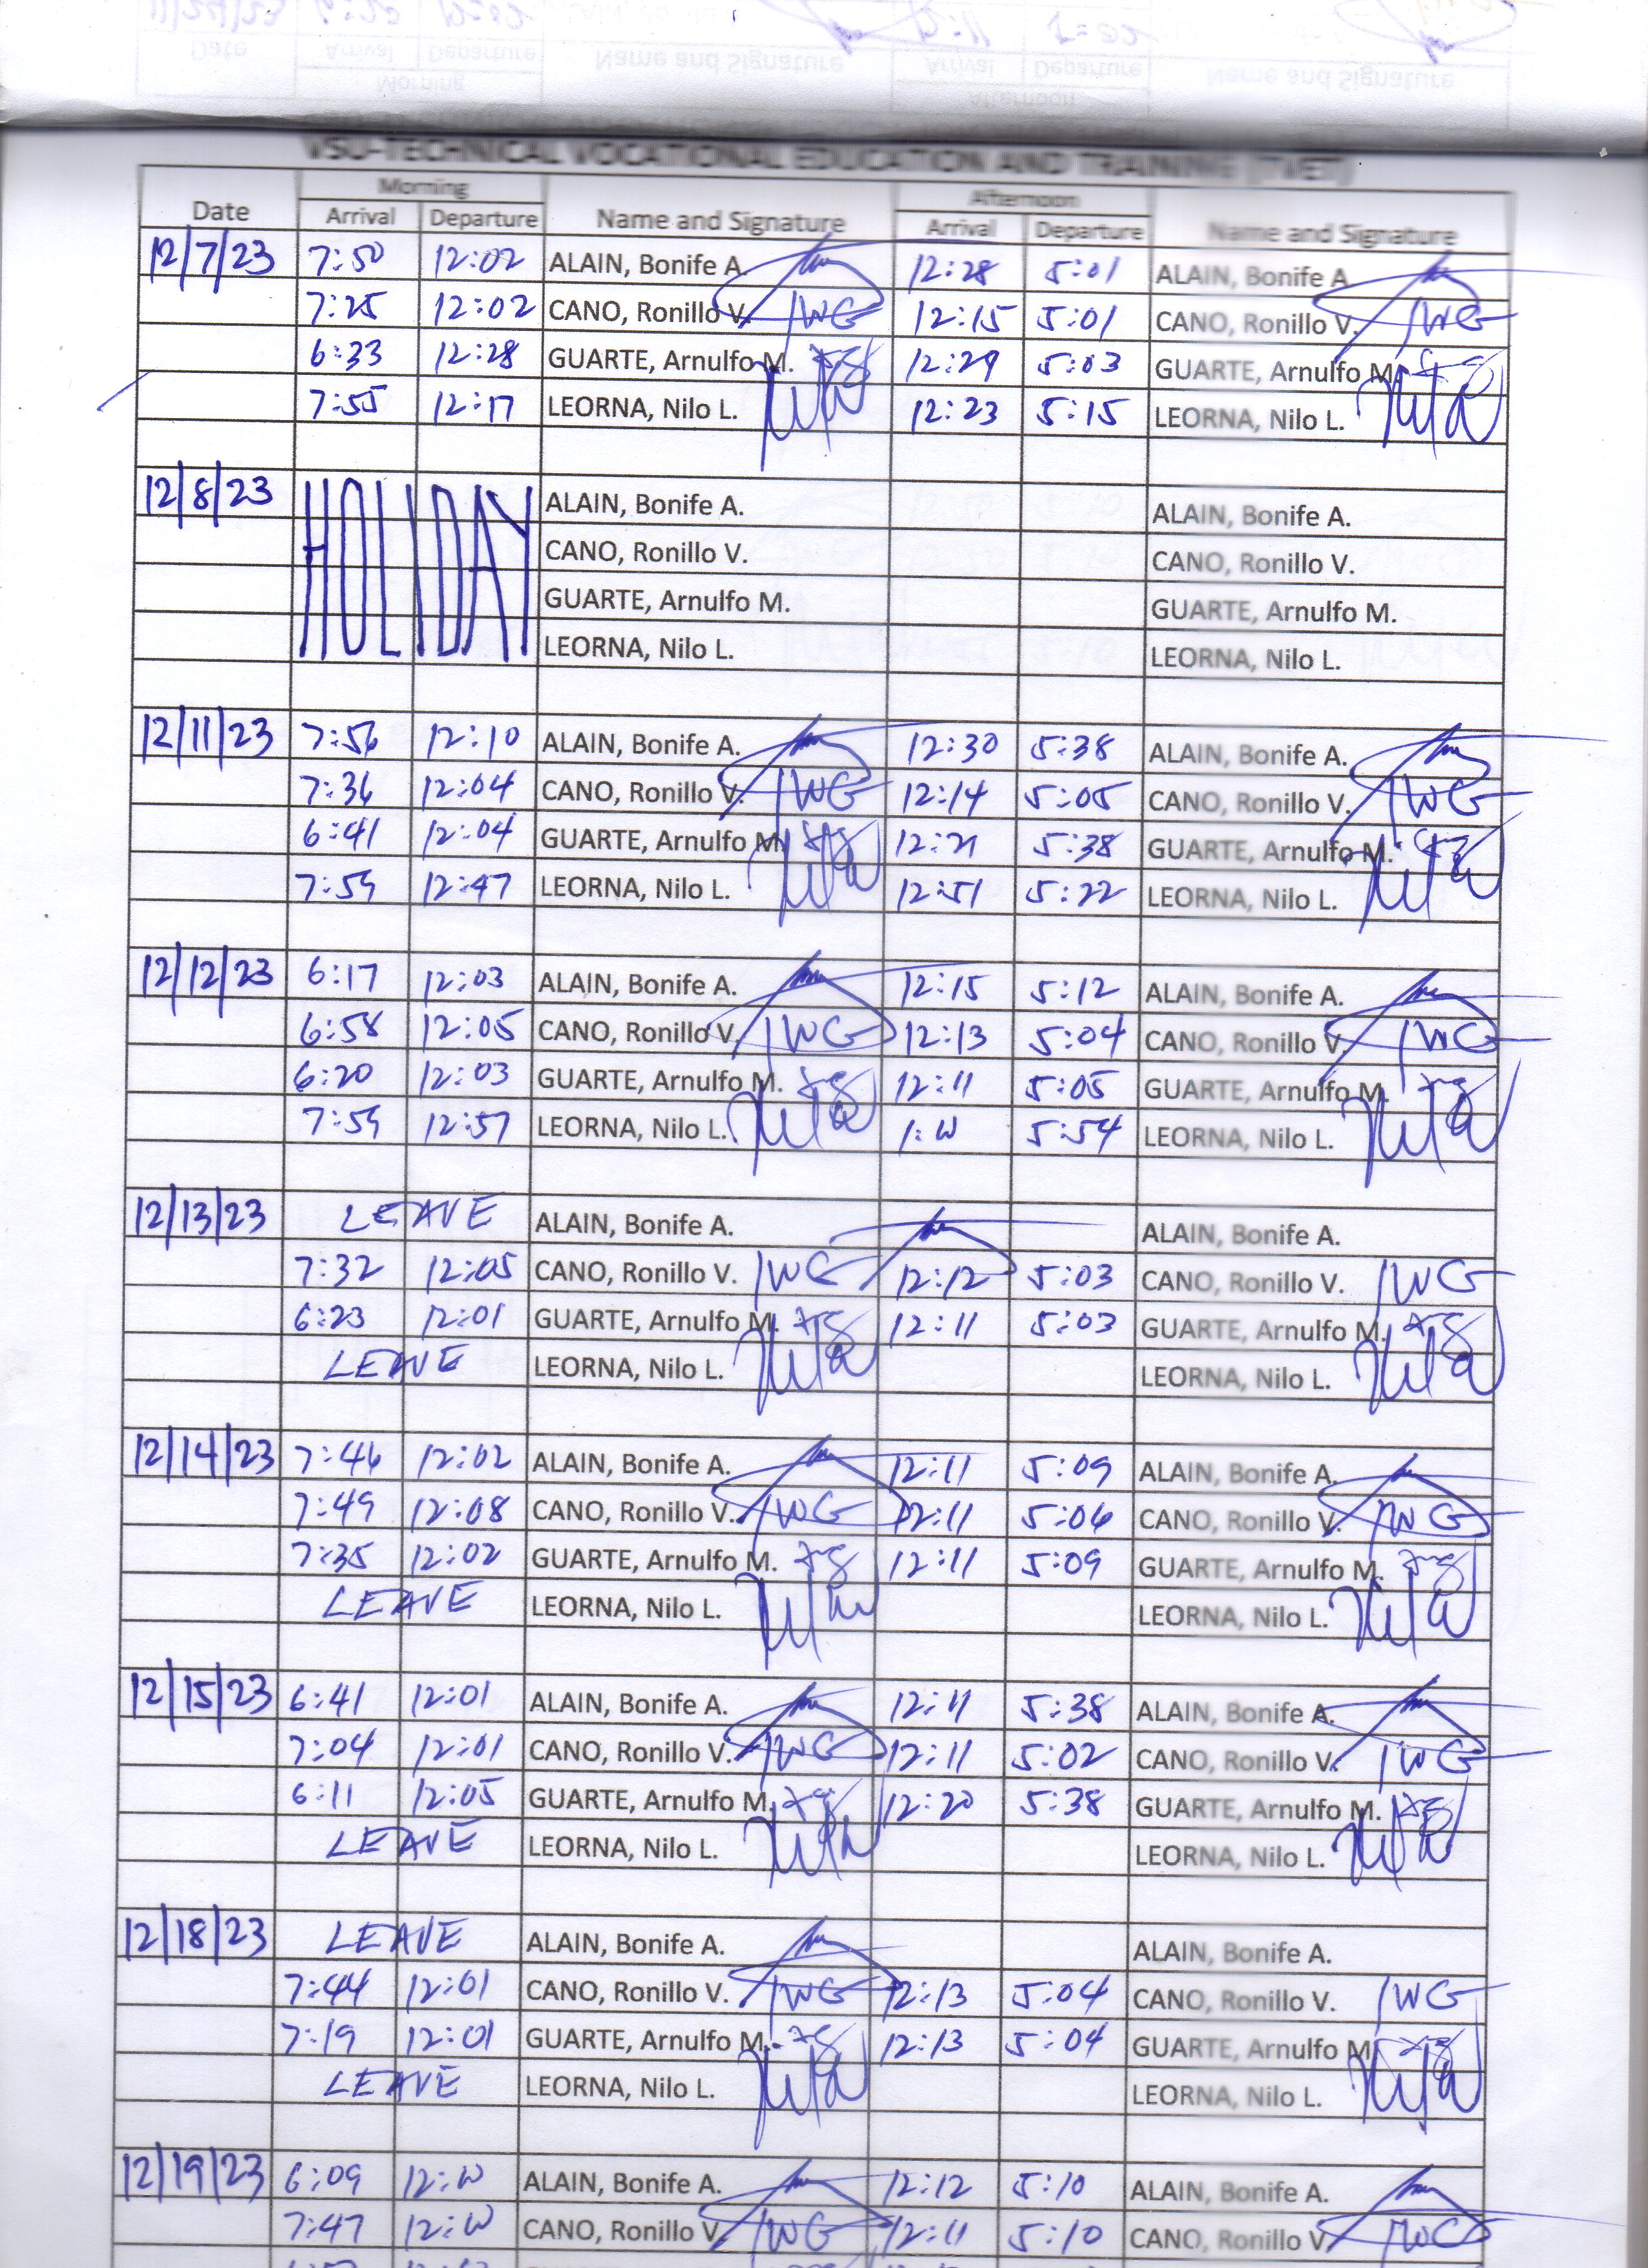 VSU-TECHNICAL VOCATIONAL EDUCATION AND TRAINING (TVET)
Morning Afternoon
Date Arrival Departure Name and Signature Arrival Departure Name and Signature
12/7/23 7:50 12:02 ALAIN, Bonife A. 12:28 5:01 ALAIN, Bonife A.
7:25 12:02 CANO, Ronillo V. 12:15 5:01 CANO, Ronillo V.
6:33 12:28 GUARTE, Arnulfo M. 12:29 5:03 GUARTE, Arnulfo M.
7:55 12:17 LEORNA, Nilo L. 12:23 5:15 LEORNA, Nilo L.
12/8/23 HOLIDAY ALAIN, Bonife A. ALAIN, Bonife A.
CANO, Ronillo V. CANO, Ronillo V.
GUARTE, Arnulfo M. GUARTE, Arnulfo M.
LEORNA, Nilo L. LEORNA, Nilo L.
12/11/23 7:56 12:10 ALAIN, Bonife A. 12:30 5:38 ALAIN, Bonife A.
7:36 12:04 CANO, Ronillo V. 12:14 5:05 CANO, Ronillo V.
6:41 12:04 GUARTE, Arnulfo M. 12:21 5:38 GUARTE, Arnulfo M.
7:59 12:47 LEORNA, Nilo L. 12:51 5:22 LEORNA, Nilo L.
12/12/23 6:17 12:03 ALAIN, Bonife A. 12:15 5:12 ALAIN, Bonife A.
6:58 12:05 CANO, Ronillo V. 12:13 5:04 CANO, Ronillo V.
6:20 12:03 GUARTE, Arnulfo M. 12:11 5:05 GUARTE, Arnulfo M.
7:59 12:57 LEORNA, Nilo L. 5:54 LEORNA, Nilo L.
12/13/23 LEAVE ALAIN, Bonife A. ALAIN, Bonife A.
7:32 12:05 CANO, Ronillo V. 12:12 5:03 CANO, Ronillo V.
6:23 12:01 GUARTE, Arnulfo M. 12:11 5:03 GUARTE, Arnulfo M.
LEAVE LEORNA, Nilo L. LEORNA, Nilo L.
12/14/23 7:46 12:02 ALAIN, Bonife A. 12:11 5:09 ALAIN, Bonife A.
7:49 12:08 CANO, Ronillo V. 12:11 5:06 CANO, Ronillo V.
7:35 12:02 GUARTE, Arnulfo M. 12:11 5:09 GUARTE, Arnulfo M.
LEAVE LEORNA, Nilo L. LEORNA, Nilo L.
12/15/23 6:41 12:01 ALAIN, Bonife A. 12:11 5:38 ALAIN, Bonife A.
7:04 12:01 CANO, Ronillo V. 12:11 5:02 CANO, Ronillo V.
6:11 12:05 GUARTE, Arnulfo M. 12:20 5:38 GUARTE, Arnulfo M.
LEAVE LEORNA, Nilo L. LEORNA, Nilo L.
12/18/23 LEAVE ALAIN, Bonife A. ALAIN, Bonife A.
7:44 12:01 CANO, Ronillo V. 12:13 5:04 CANO, Ronillo V.
7:19 12:01 GUARTE, Arnulfo M. 12:13 5:04 GUARTE, Arnulfo M.
LEAVE LEORNA, Nilo L. LEORNA, Nilo L.
12/19/23 6:09 ALAIN, Bonife A. 12:12 5:10 ALAIN, Bonife A.
7:47 CANO, Ronillo V. 12:11 5:10 CANO, Ronillo V.